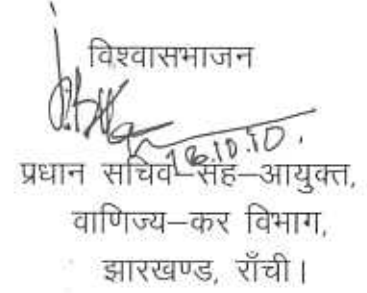 विश्वासभाजन
16.10.10.
प्रधान सचिव–सह–आयुक्त,
वाणिज्य–कर विभाग,
झारखण्ड, राँची।